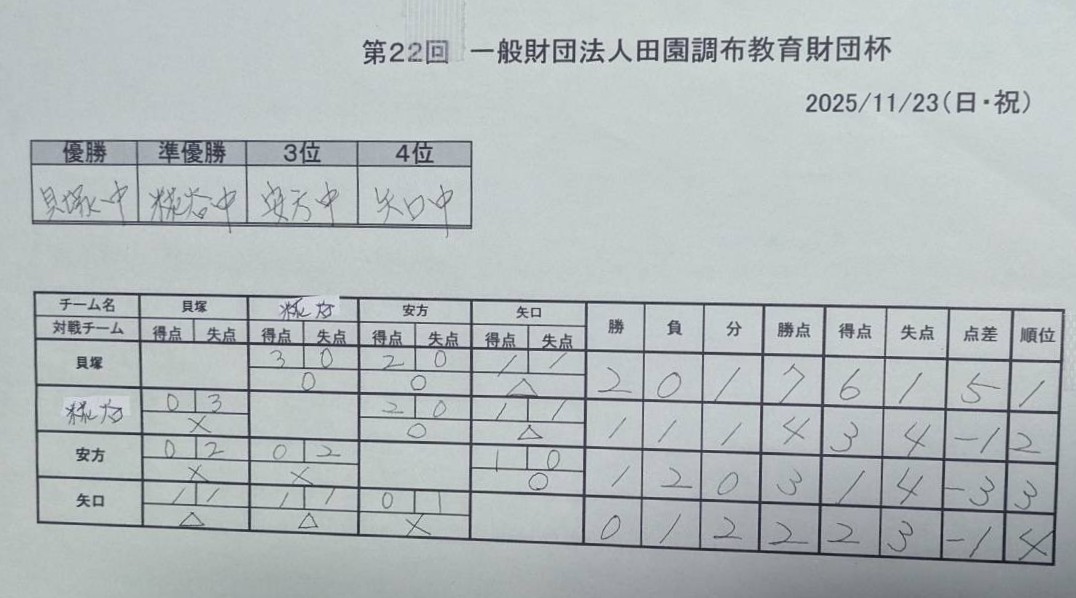 第22回 一般財団法人田園調布教育財団杯
2025/11/23(日・祝)
優勝 準優勝 3位 4位
貝塚中 糀谷中 安方中 矢口中
チーム名 貝塚 糀谷 安方 矢口 勝 負 分 勝点 得点 失点 点差 順位
対戦チーム 得点 失点 得点 失点 得点 失点 得点 失点
貝塚 3 0 2 0 1 1 2 0 1 7 6 1 5 1
○ ○ △
糀谷 0 3 2 0 1 1 1 1 1 4 3 4 -1 2
× ○ △
安方 0 2 0 2 1 0 1 2 0 3 1 4 -3 3
× × ○
矢口 1 1 1 1 0 1 0 1 2 2 2 3 -1 4
△ △ ×